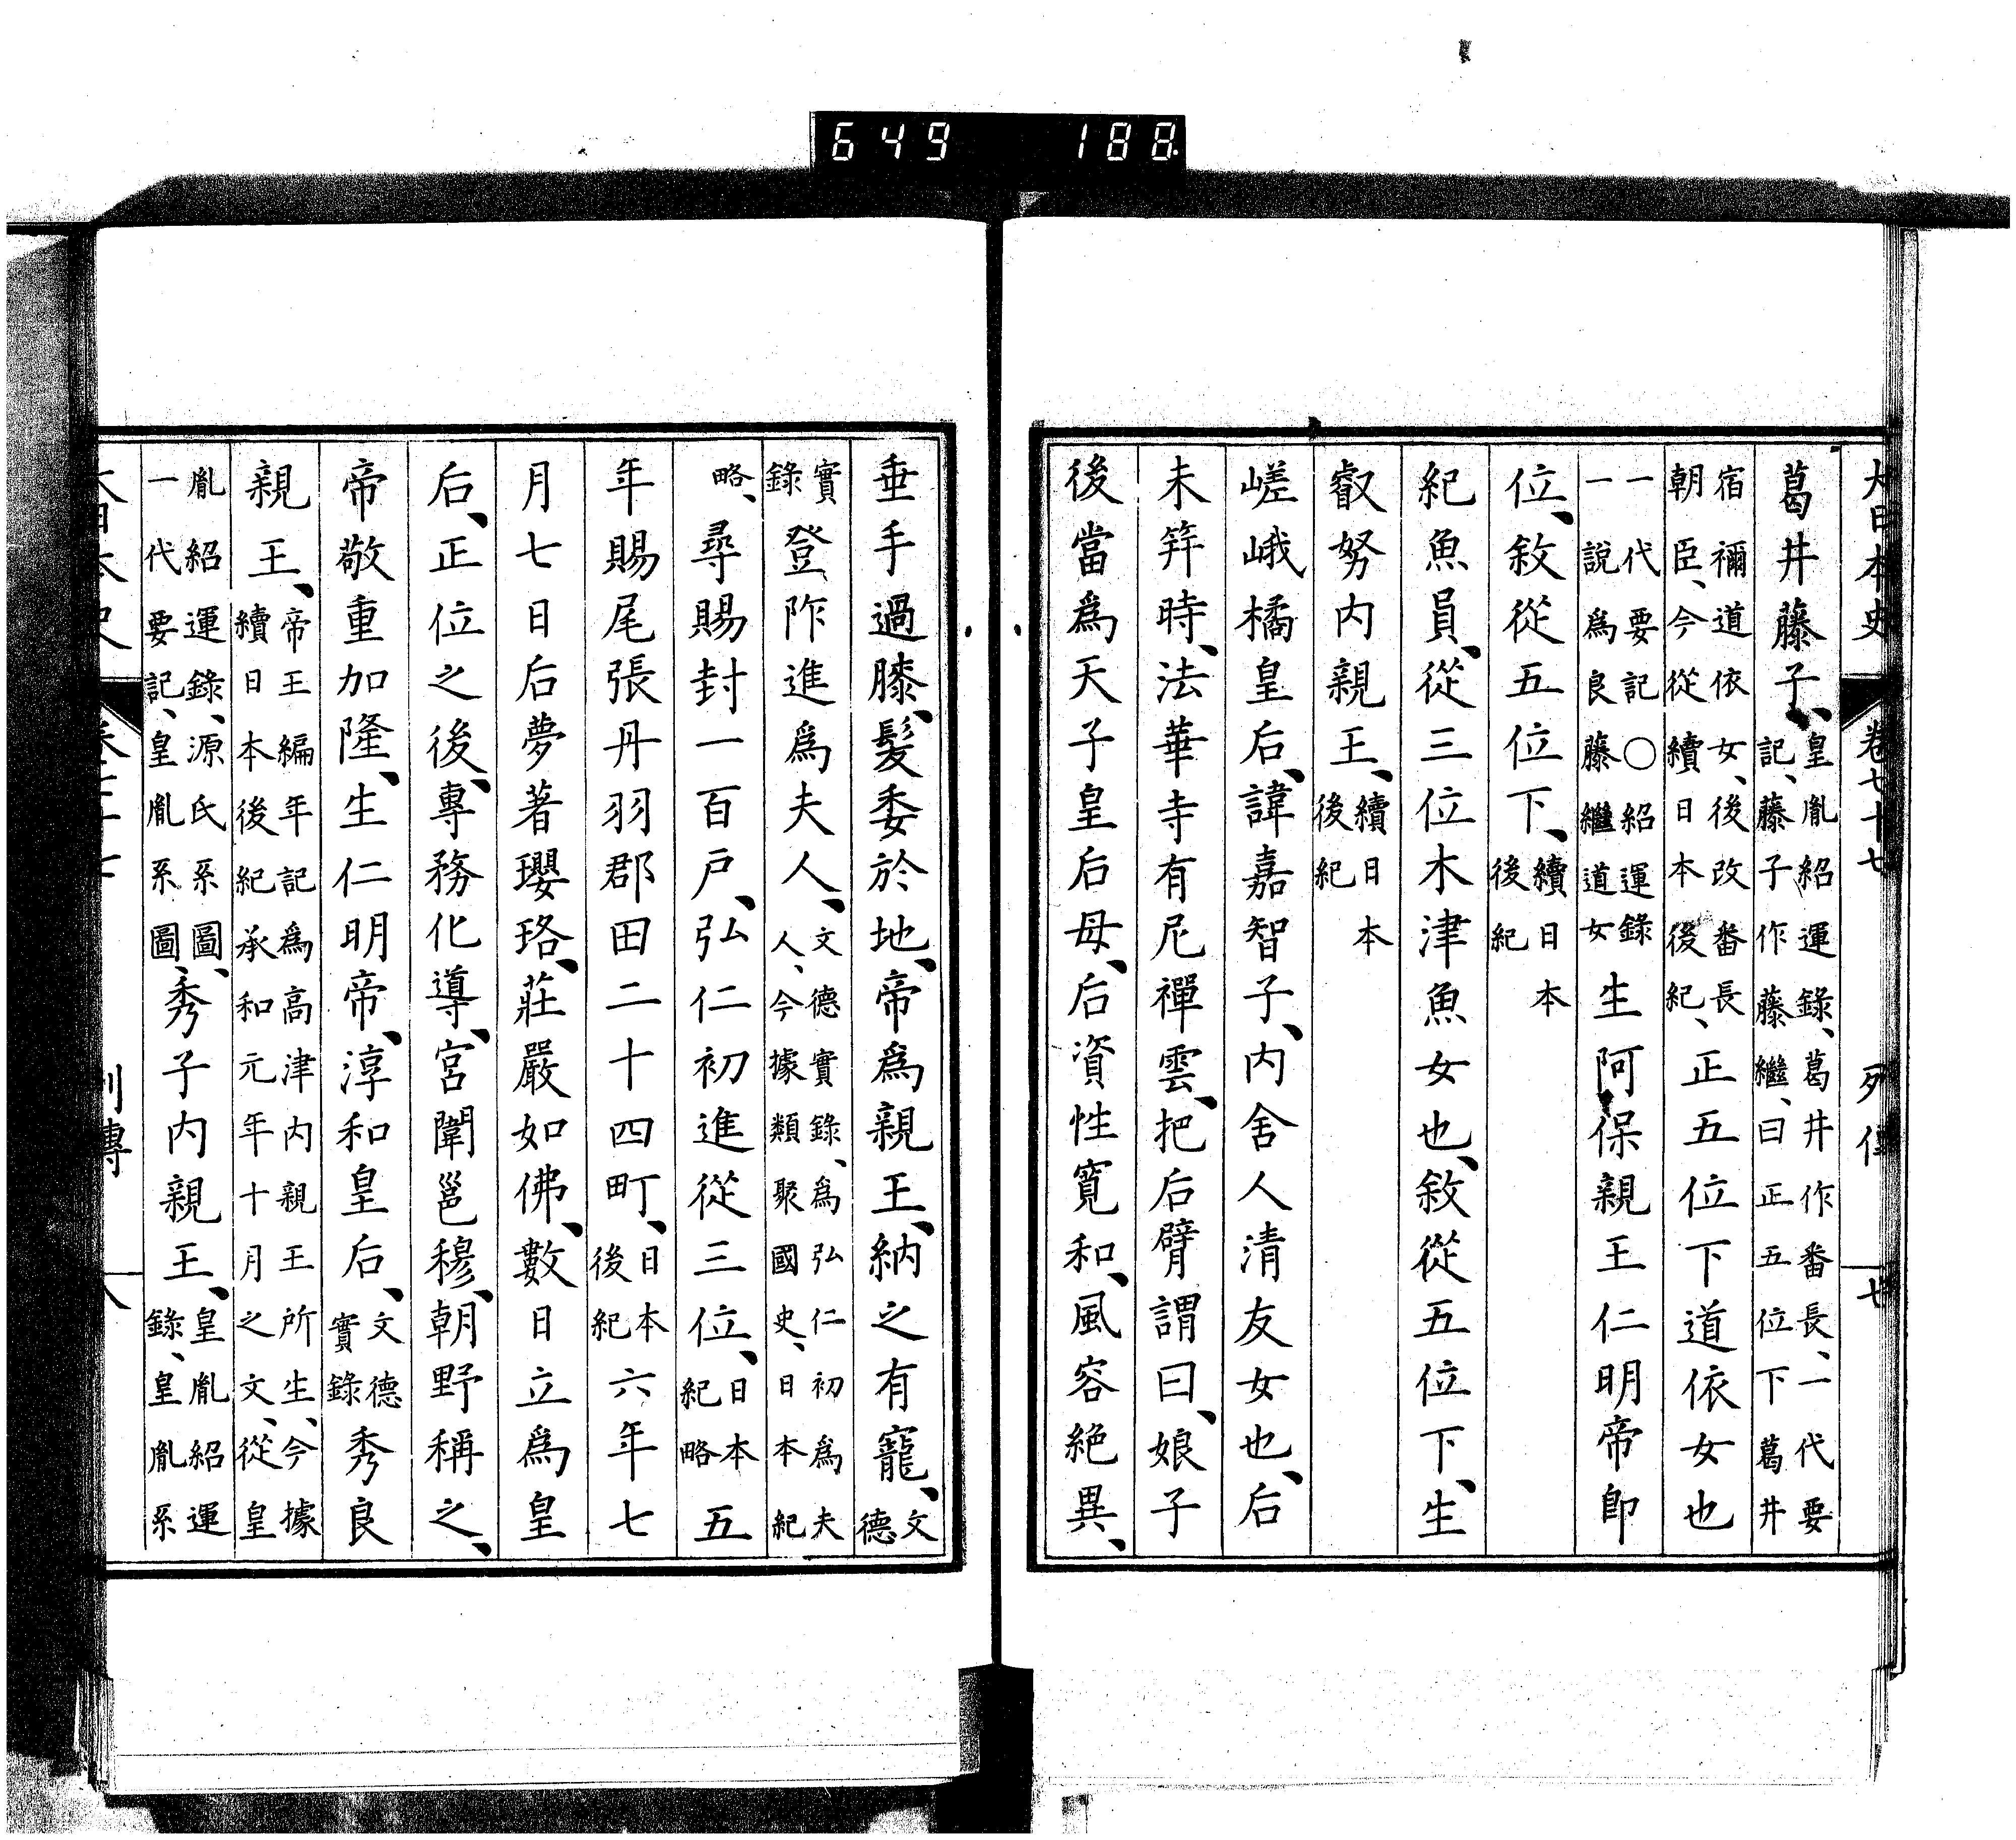 649 188
大日本史 卷七十七 列傳 十七
葛井藤子、皇胤紹運錄、葛井作番長、一代要記、藤子作藤繼、曰正五位下葛井
宿禰道依女、後改番長朝臣、今從續日本後紀、正五位下道依女也
一代要記〇紹運錄一說爲良藤繼道女生阿保親王仁明帝卽
位、敘從五位下、續日本後紀
紀魚員、從三位木津魚女也、敘從五位下、生
叡努內親王、續日本後紀
嵯峨橘皇后、諱嘉智子、內舍人清友女也、后
未筓時、法華寺有尼禪雲、把后臂謂曰、娘子
後當爲天子皇后母、后資性寬和、風容絶異、
垂手過膝、髮委於地、帝爲親王、納之有寵、文德
實錄登阼進爲夫人、文德實錄、爲弘仁初爲夫人、今據類聚國史、日本紀
略、尋賜封一百戶、弘仁初進從三位、日本紀略五
年賜尾張丹羽郡田二十四町、日本後紀六年七
月七日后夢著瓔珞、莊嚴如佛、數日立爲皇
后、正位之後、專務化導、宮闈邕穆、朝野稱之、
帝敬重加隆、生仁明帝、淳和皇后、文德實錄秀良
親王、帝王編年記爲高津內親王所生、今據續日本後紀承和元年十月之文、從皇
胤紹運錄、源氏系圖、一代要記、皇胤系圖、秀子內親王、皇胤紹運錄、皇胤系